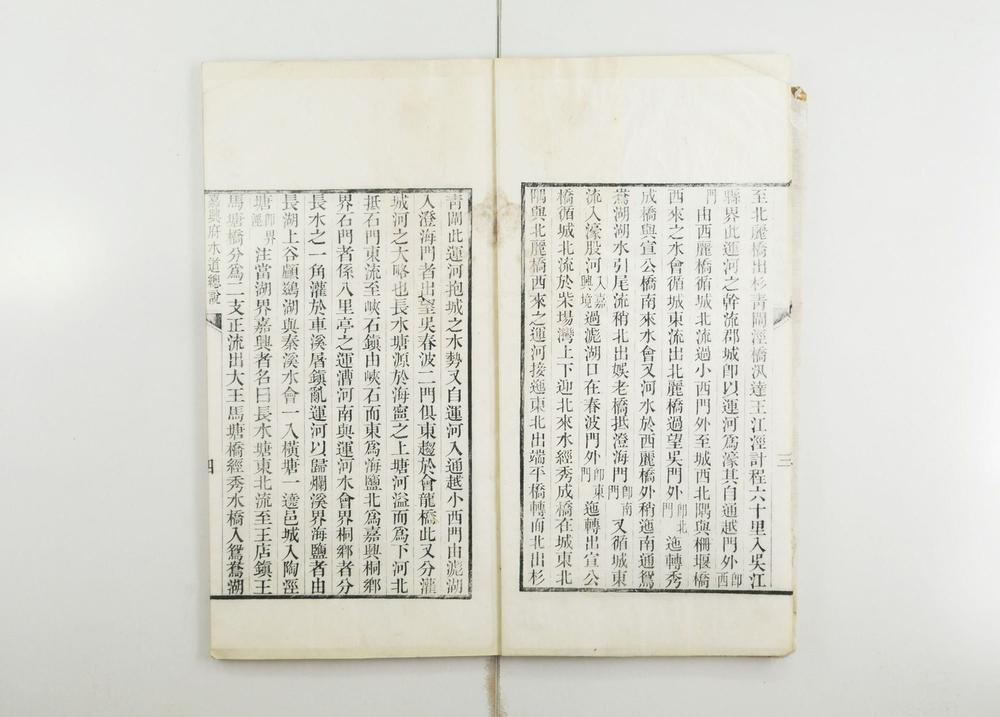 至北麗橋出杉青閘涇橋汎達王江涇計程六十里入吳江
縣界此運河之幹流郡城卽以運河爲濠其自通越門外卽西
門由西麗橋循城北流過小西門外至城西北隅與柵堰橋
西來之水會循城東流出北麗橋過望吳門外卽北門迤轉秀
成橋與宣公橋南來水會又河水於西麗橋外稍迤南通鴛
鴦湖湖水引尾流稍北出娛老橋抵澄海門卽南門又循城東
流入濠股河入嘉興境過滮湖口在春波門外卽東門迤轉出宣公
橋循城北流於柴場灣上下迎北來水經秀成橋在城東北
隅與北麗橋西來之運河接迤東北出端平橋轉而北出杉
三
青閘此運河抱城之水勢又自運河入通越小西門由滮湖
入澄海門者出望吳春波二門俱東趨於會龍橋此又分灌
城河之大略也長水塘源於海寧之上塘河溢而爲下河北
抵石門東流至峽石鎮由峽石而東爲海鹽北爲嘉興桐鄉
界石門者係八里亭之運漕河南與運河水會界桐鄉者分
長水之一角灌於車溪屠鎮亂運河以歸爛溪界海鹽者由
長湖上谷顧鷂湖與秦溪水會一入橫塘一遶邑城入陶涇
塘卽界涇注當湖界嘉興者名曰長水塘東北流至王店鎮王
馬塘橋分爲二支正流出大王馬塘橋經秀水橋入鴛鴦湖
嘉興府水道總說
四